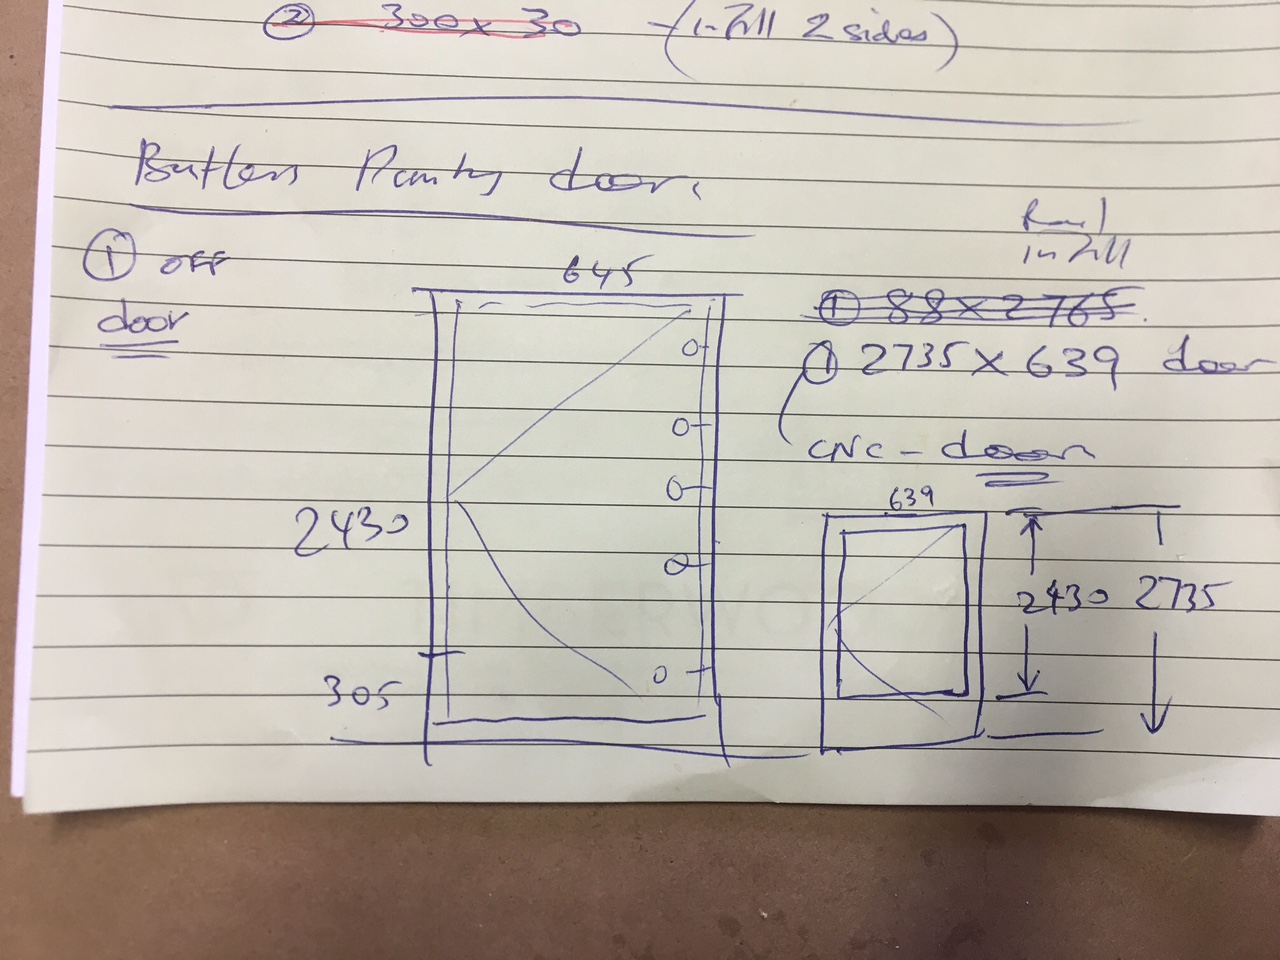 ② 300 x 30 - (infill 2 sides)
Butlers Pantry door.
① OFF
door
645
2430
305
infill
① 88 x 2765.
① 2735 x 639 door
CNC - door
639
2430 2735